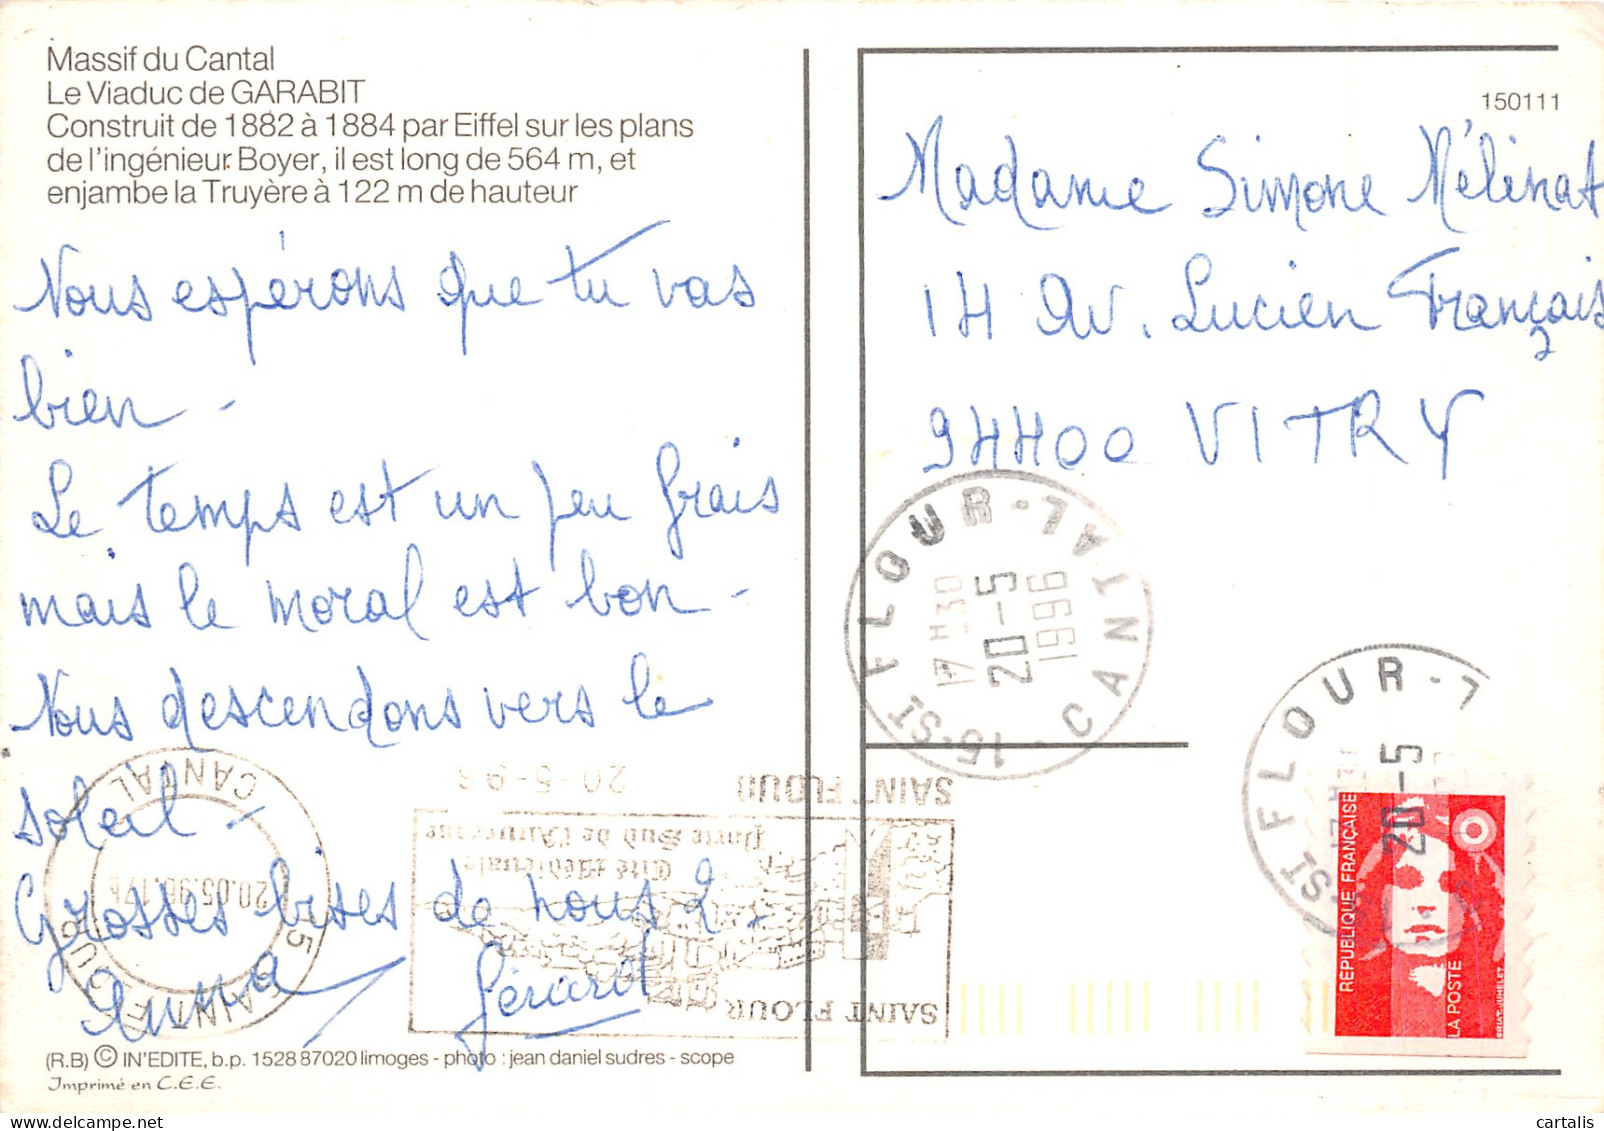 Massif du Cantal
Le Viaduc de GARABIT
Construit de 1882 à 1884 par Eiffel sur les plans
de l'ingénieur Boyer, il est long de 564 m, et
enjambe la Truyère à 122 m de hauteur
Nous espérons que tu vas
bien -
Le temps est un peu frais
mais le moral est bon -
Nous descendons vers le
soleil -
Grosses bises de nous 2 -
Anna Gérard
(R.B) © IN'EDITE, b.p. 1528 87020 limoges - photo : jean daniel sudres - scope
Imprimé en C.E.E.
150111
Madame Simone Mélinat
14 Av. Lucien Français
94400 VITRY
15-ST FLOUR-7 - CANTAL
17 H30
20-5
1996
ST FLOUR-7
20-5
RÉPUBLIQUE FRANÇAISE
LA POSTE
BRIAT-JUMELET
SAINT FLOUR
20-5-96
SAINT FLOUR
Cité Médiévale
Porte Sud de l'Auvergne
15 SAINT FLOUR
CANTAL
20.05.96.17h
cartalis.com